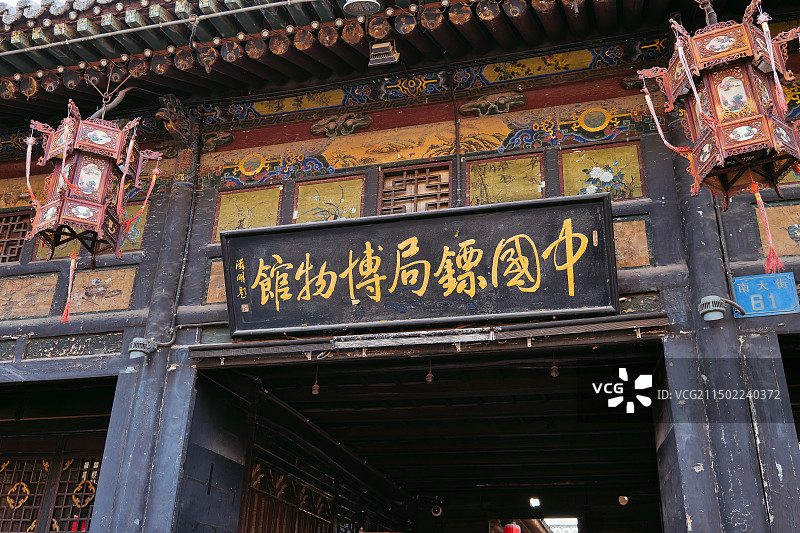 中國鏢局博物館
南大街
61
VCG
VCG.COM
ID: VCG211502240372